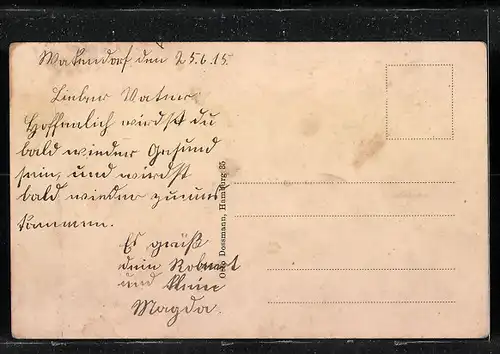 Wakendorf den 25.6.15.
Lieber Vater
Hoffenlich wirdst du
bald wieder Gesund
sein, und wirdst
bald wieder zu uns
kommen.
Es grüß
dein Robert
und kleine
Magda.
Otto Dossmann, Hamburg 35